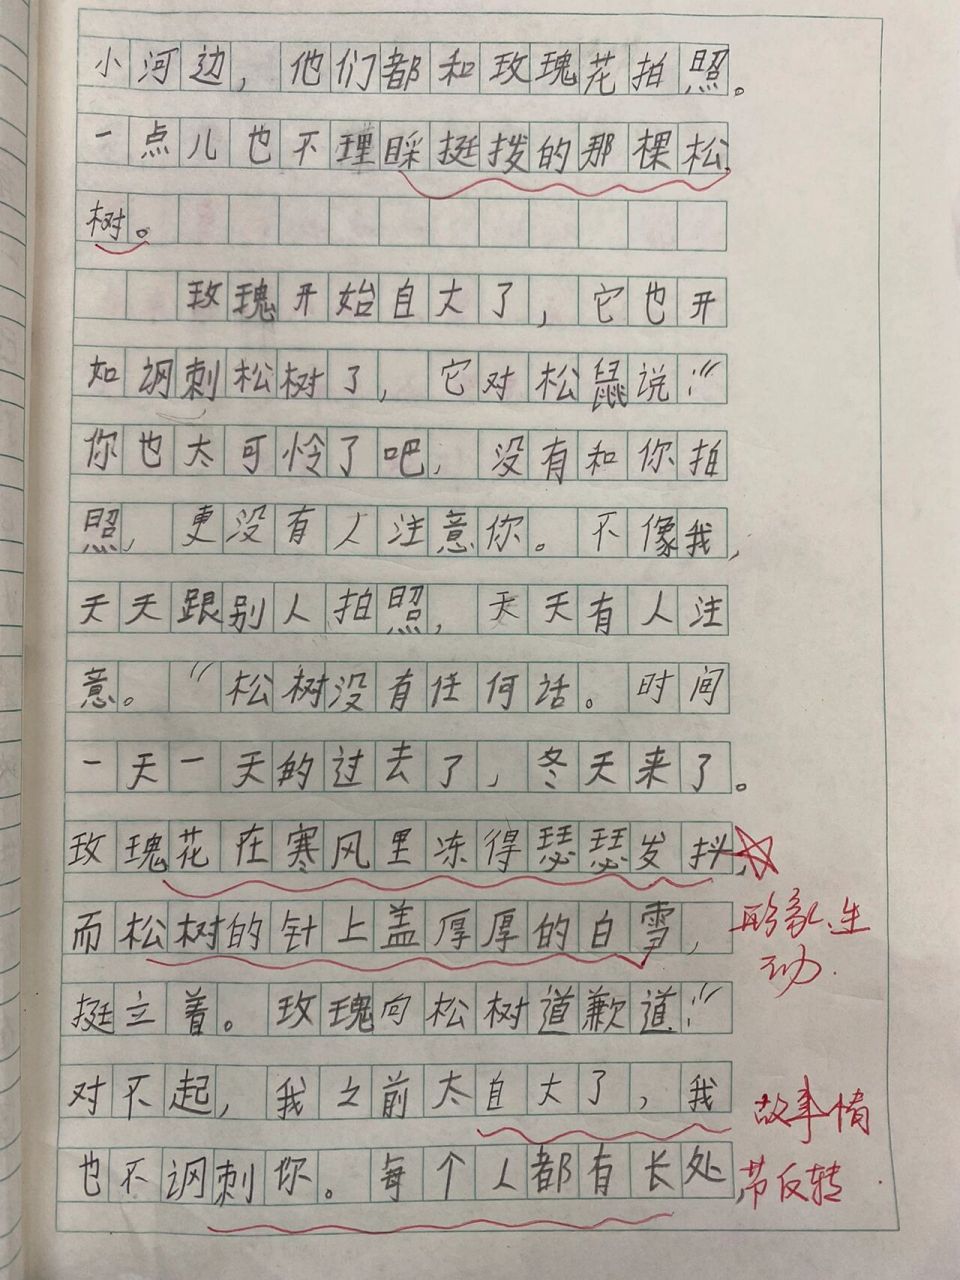 小河边，他们都和玫瑰花拍照。
一点儿也不理睬挺拨的那棵松
树。
玫瑰开始自大了，它也开
如讽刺松树了，它对松鼠说：“
你也太可怜了吧，没有和你拍
照，更没有人注意你。不像我，
天天跟别人拍照，天天有人注
意。”松树没有任何话。时间
一天一天的过去了，冬天来了。
玫瑰花在寒风里冻得瑟瑟发抖，
而松树的针上盖厚厚的白雪，
形象、生
动.
挺立着。玫瑰向松树道歉道：“
对不起，我之前太自大了，我
故事情
也不讽刺你。每个人都有长处，
节反转